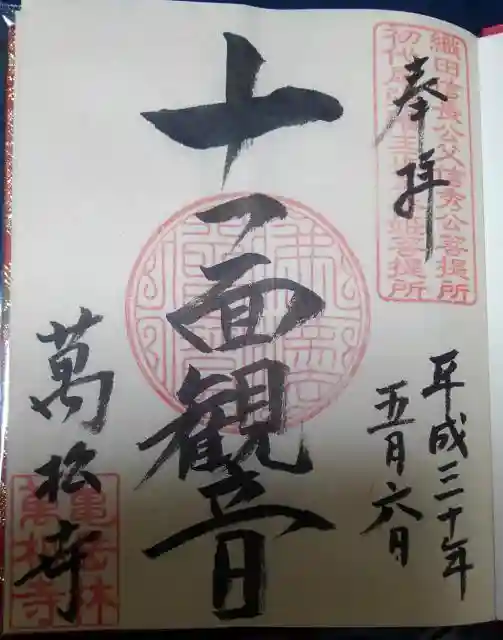 奉拝
織田信長公父信秀公菩提所
平成三十年
五月六日
十一面観音
萬松寺
亀岳林
萬松寺